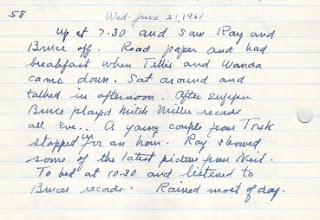 58
Wed. June 21, 1961
Up at 7.30 and saw Ray and
Bruce off. Read paper and had
breakfast when Tillie and Wanda
came down. Sat around and
talked in afternoon. After supper
Bruce played Mitch Miller records
all Eve.. A young couple from
stopped in for an hour. Ray showed
some of the latest pictures from
To bed at 10.30 and listened to
Bruces records. Rained most of day.